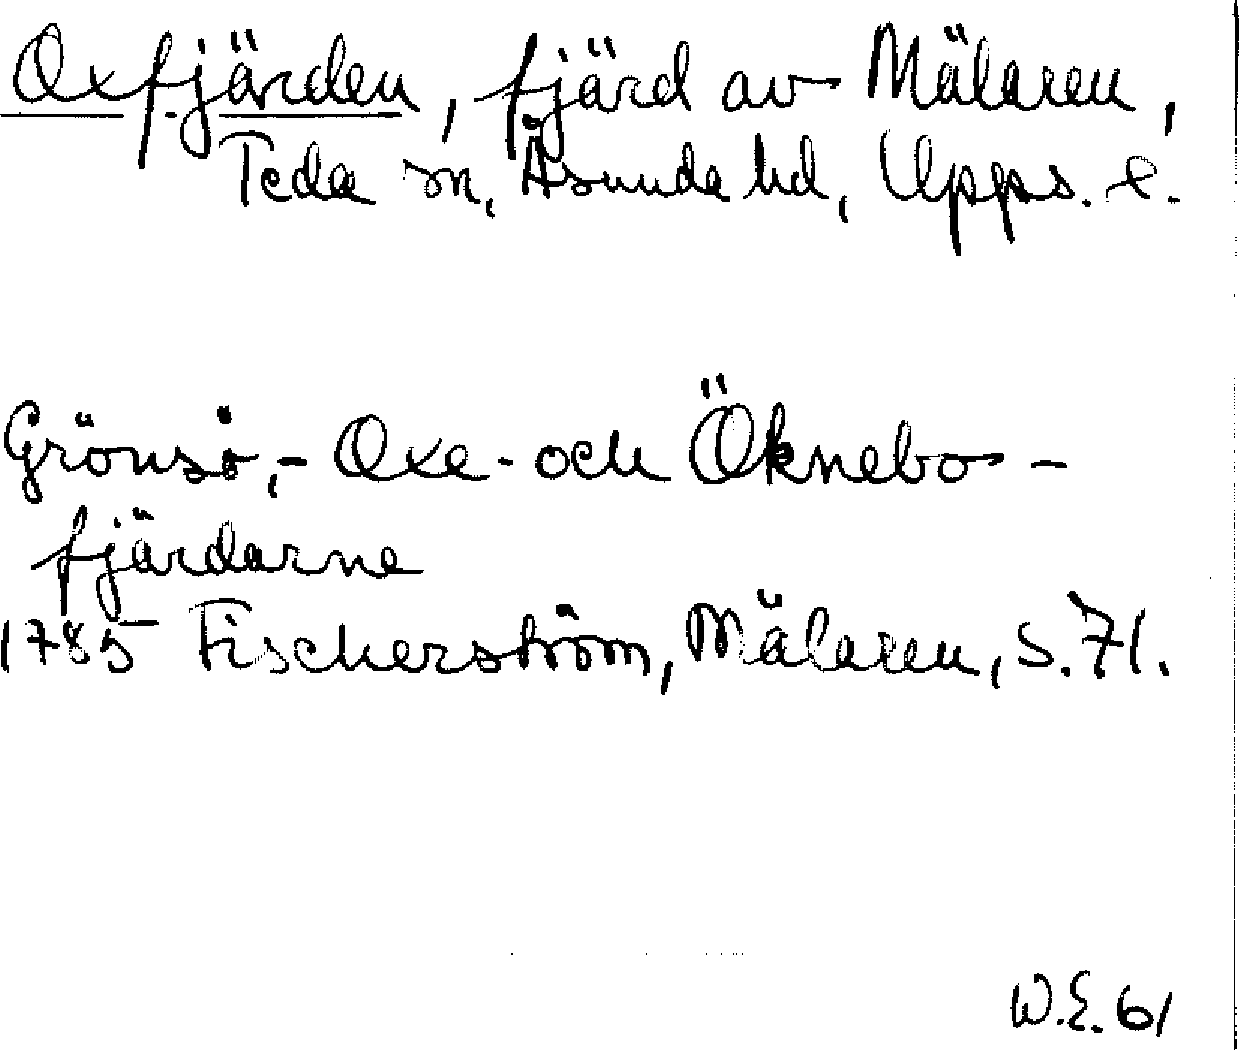 Oxfjärden, fjärd av Mälaren,
Teda sn, Åsunda hd, Upps. l.
Grönsö,- Oxe- och Öknebo-
fjärdarne
1785 Fischerström, Mälaren, s. 71.
W.E. 61